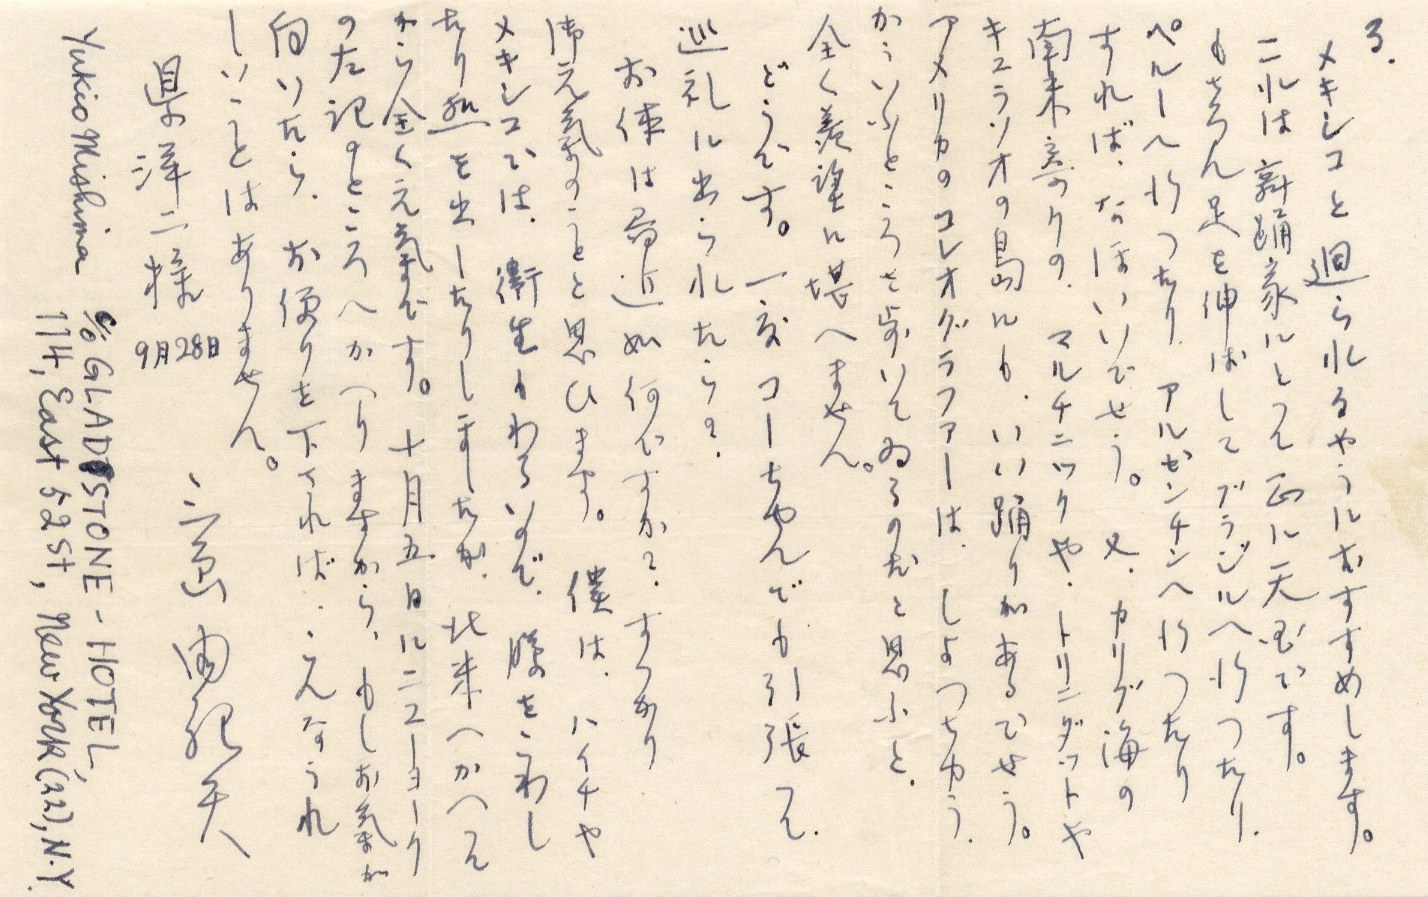 3.
メキシコと廻られるやうにおすすめします。
これは舞踊家にとつて正に天国です。
もちろん足を伸ばしてブラジルへ行つたり、
ペルーへ行つたり、アルゼンチンへ行つたり
すれば、なほいいでせう。又、カリブ海の
南米寄りの、マルチニックや、トリニダットや
キュラソオの島にも、いい踊りがあるでせう。
アメリカのコレオグラファーは、しよつちゆう、
かういふところを歩いてゐるのだと思ふと、
全く羨望に堪へません。
どうです。一度コーちやんでも引張つて、
巡礼に出られたら?
お体は最近如何ですか? すつかり
御元気のことと思ひます。僕は、ハイチや
メキシコでは、衛生もわるいので、腹をこわし
たり熱を出したりしましたが、北米へかへつて
から全く元気です。十月五日にニューヨーク
の左記のところへかへりますから、もしお気が
向いたら、お便りを下されば、こんなうれ
しいことはありません。
三島由紀夫
県洋二様
9月28日
Yukio Mishima
c/o GLADSTONE-HOTEL,
114, East 52 st, New York (22), N.Y.